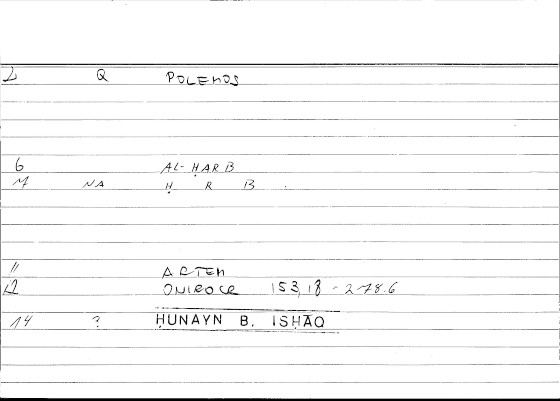 Q POLEMOS
6 AL-ḤARB
NA Ḥ R B
11 ARTEM
12 ONIROCR 153,18 - 278.6
14 ? ḤUNAYN B. ISḤĀQ